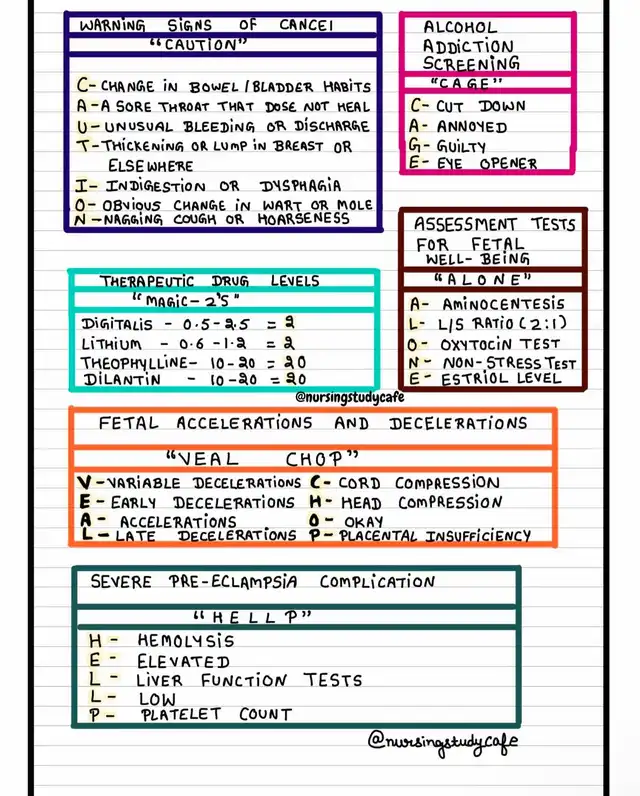 WARNING SIGNS OF CANCEI
"CAUTION"
C-CHANGE IN BOWEL/BLADDER HABITS
A-A SORE THROAT THAT DOSE NOT HEAL
U-UNUSUAL BLEEDING OR DISCHARGE
T-THICKENING OR LUMP IN BREAST OR
ELSEWHERE
I- INDIGESTION OR DYSPHAGIA
O- OBVIOUS CHANGE IN WART OR MOLE
N-NAGGING COUGH OR HOARSENESS
ALCOHOL
ADDICTION
SCREENING
"CAGE"
C- CUT DOWN
A- ANNOYED
G- GUILTY
E- EYE OPENER
ASSESSMENT TESTS
FOR FETAL
WELL-BEING
"ALONE"
A- AMINOCENTESIS
L- L/S RATIO (2:1)
O- OXYTOCIN TEST
N- NON-STRESS TEST
E- ESTRIOL LEVEL
THERAPEUTIC DRUG LEVELS
"MAGIC-2'S"
DIGITALIS - 0.5-2.5 = 2
LITHIUM - 0.6-1.2 = 2
THEOPHYLLINE- 10-20 = 20
DILANTIN - 10-20 = 20
@nursingstudycafe
FETAL ACCELERATIONS AND DECELERATIONS
"VEAL CHOP"
V-VARIABLE DECELERATIONS C- CORD COMPRESSION
E- EARLY DECELERATIONS H- HEAD COMPRESSION
A- ACCELERATIONS O- OKAY
L- LATE DECELERATIONS P- PLACENTAL INSUFFICIENCY
SEVERE PRE-ECLAMPSIA COMPLICATION
"HELLP"
H- HEMOLYSIS
E- ELEVATED
L- LIVER FUNCTION TESTS
L- LOW
P- PLATELET COUNT
@nursingstudycafe